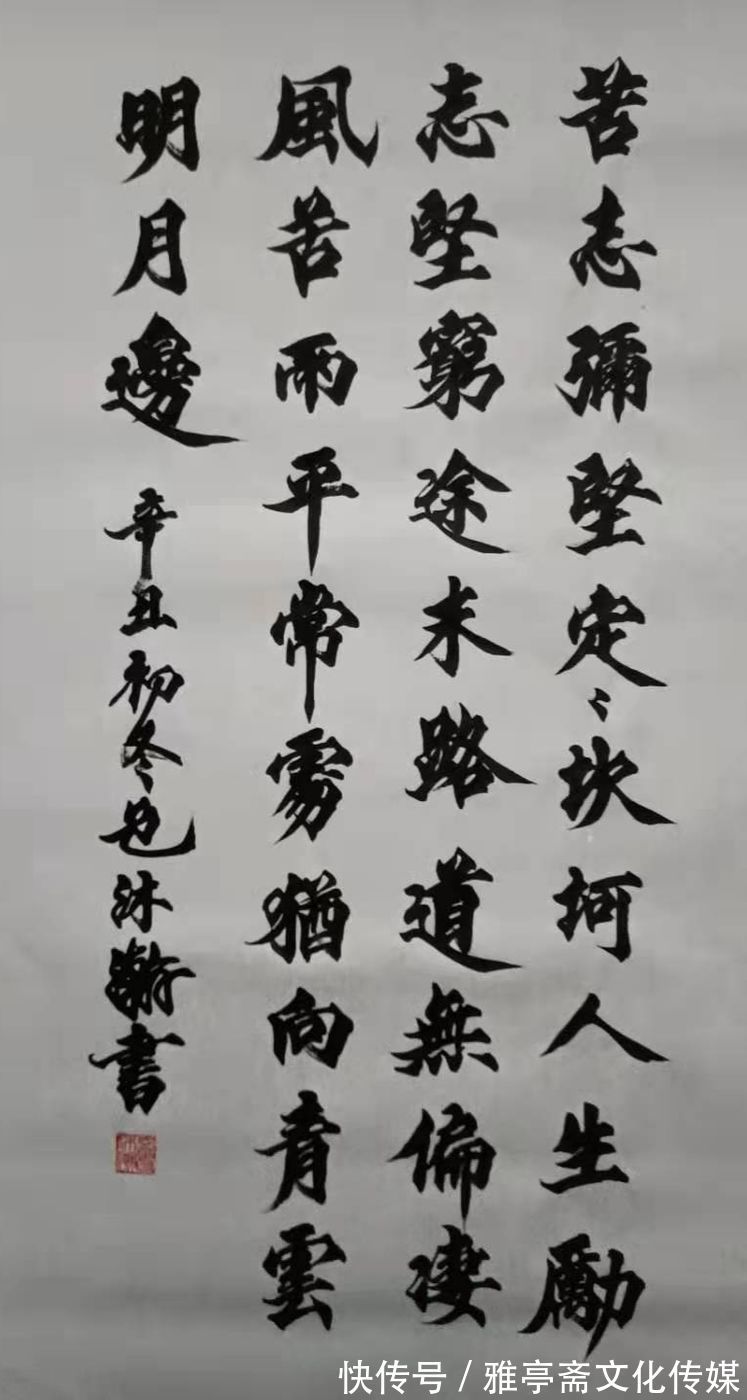 苦志彌堅定〻坎坷人生勵
志堅窮途末路道無偏凄
風苦雨平常猶向青雲
明月邊
辛丑初冬沐瀚書
快传号 / 雅亭斋文化传媒